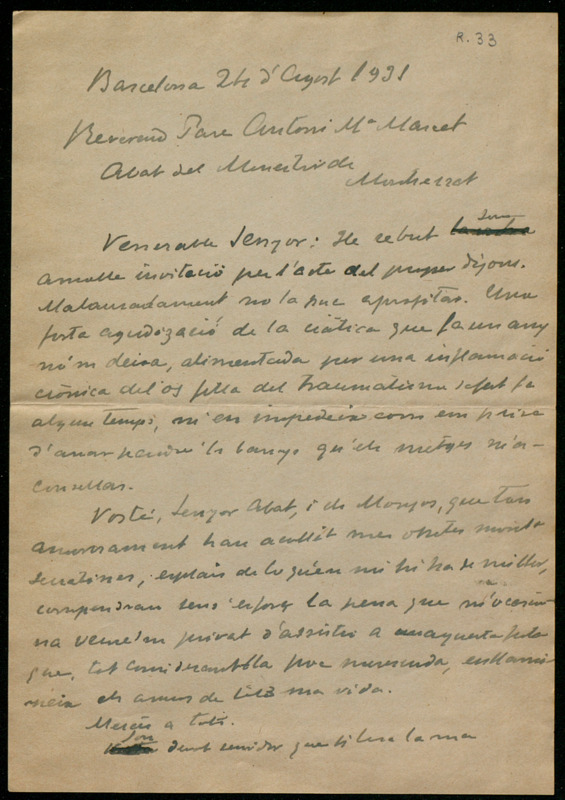 R. 33
Barcelona 24 d'Agost 1931
Reverend Pare Antoni Mª Marcet
Abat del Monestir de
Montserrat
Venerable Senyor: He rebut
amable invitació per l'acte del proper dijous.
Malauradament no la puc aprofitar. Una
forta agudizació de la ciàtica que fa un any
no'm deixa, alimentada per una inflamació
crònica del os filla del traumatisme sofert fa
algun temps, m'en impedeix com em priva
d'anar pendre'ls banys qu'els metges m'a-
consellas.
Vosté, Senyor Abat, i els Monjos, que tan
amorosament han acullit mes obretes montse-
rratines, esplais de lo qu'en mi hi ha de millor,
compendran sens esforç la pena que m'ocasio-
na veure'm privat d'assistir a aquesta festa
que, tot considerantla poc merescuda,
els amors de tota ma vida.
Mercès a tots.
Son
devot servidor que li besa la ma